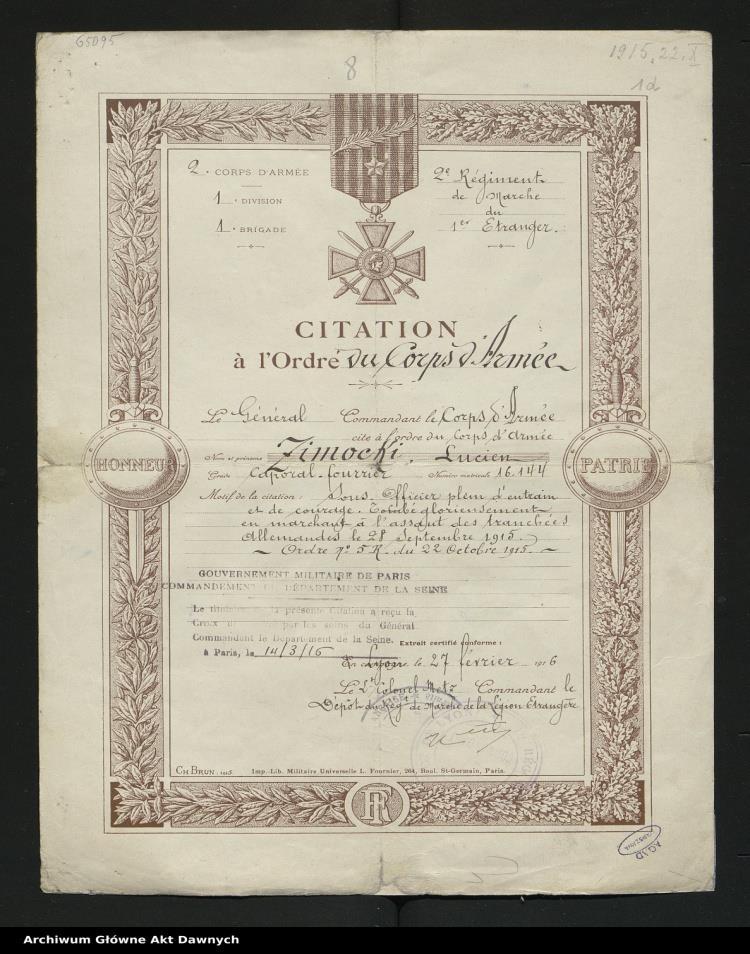 65095
8
1915.22.X
1d
2e CORPS D'ARMÉE
1e DIVISION
1e BRIGADE
2e Régiment
de Marche
du
1er Etranger.
CITATION
à l'Ordre du Corps d'Armée
Le Général Commandant le Corps d'Armée
cite à l'ordre du Corps d'Armée
Nom et prénoms Zimocki, Lucien
Grade Caporal-fourrier Numéro matricule 16.144
Motif de la citation : Sous-Officier plein d'entrain
et de courage. Tombé glorieusement
en marchant à l'assaut des tranchées
Allemandes le 28 Septembre 1915.
Ordre No 5K. du 22 Octobre 1915.
HONNEUR
PATRIE
GOUVERNEMENT MILITAIRE DE PARIS
COMMANDEMENT DÉPARTEMENT DE LA SEINE
Le titulaire la présente Citation a reçu la
Croix par les soins du Général
Commandant le Département de la Seine.
à Paris, le 14/3/16
Extrait certifié conforme :
Lyon le 27 février 1916
Le Lt Colonel Commandant le
Dépôt du Régt de Marche de la Légion Etrangère
CH BRUN. 1915.
Imp.-Lib. Militaire Universelle L. Fournier, 264, Boul. St-Germain, Paris.
RF
AGAD
WARSZAWA
Archiwum Główne Akt Dawnych